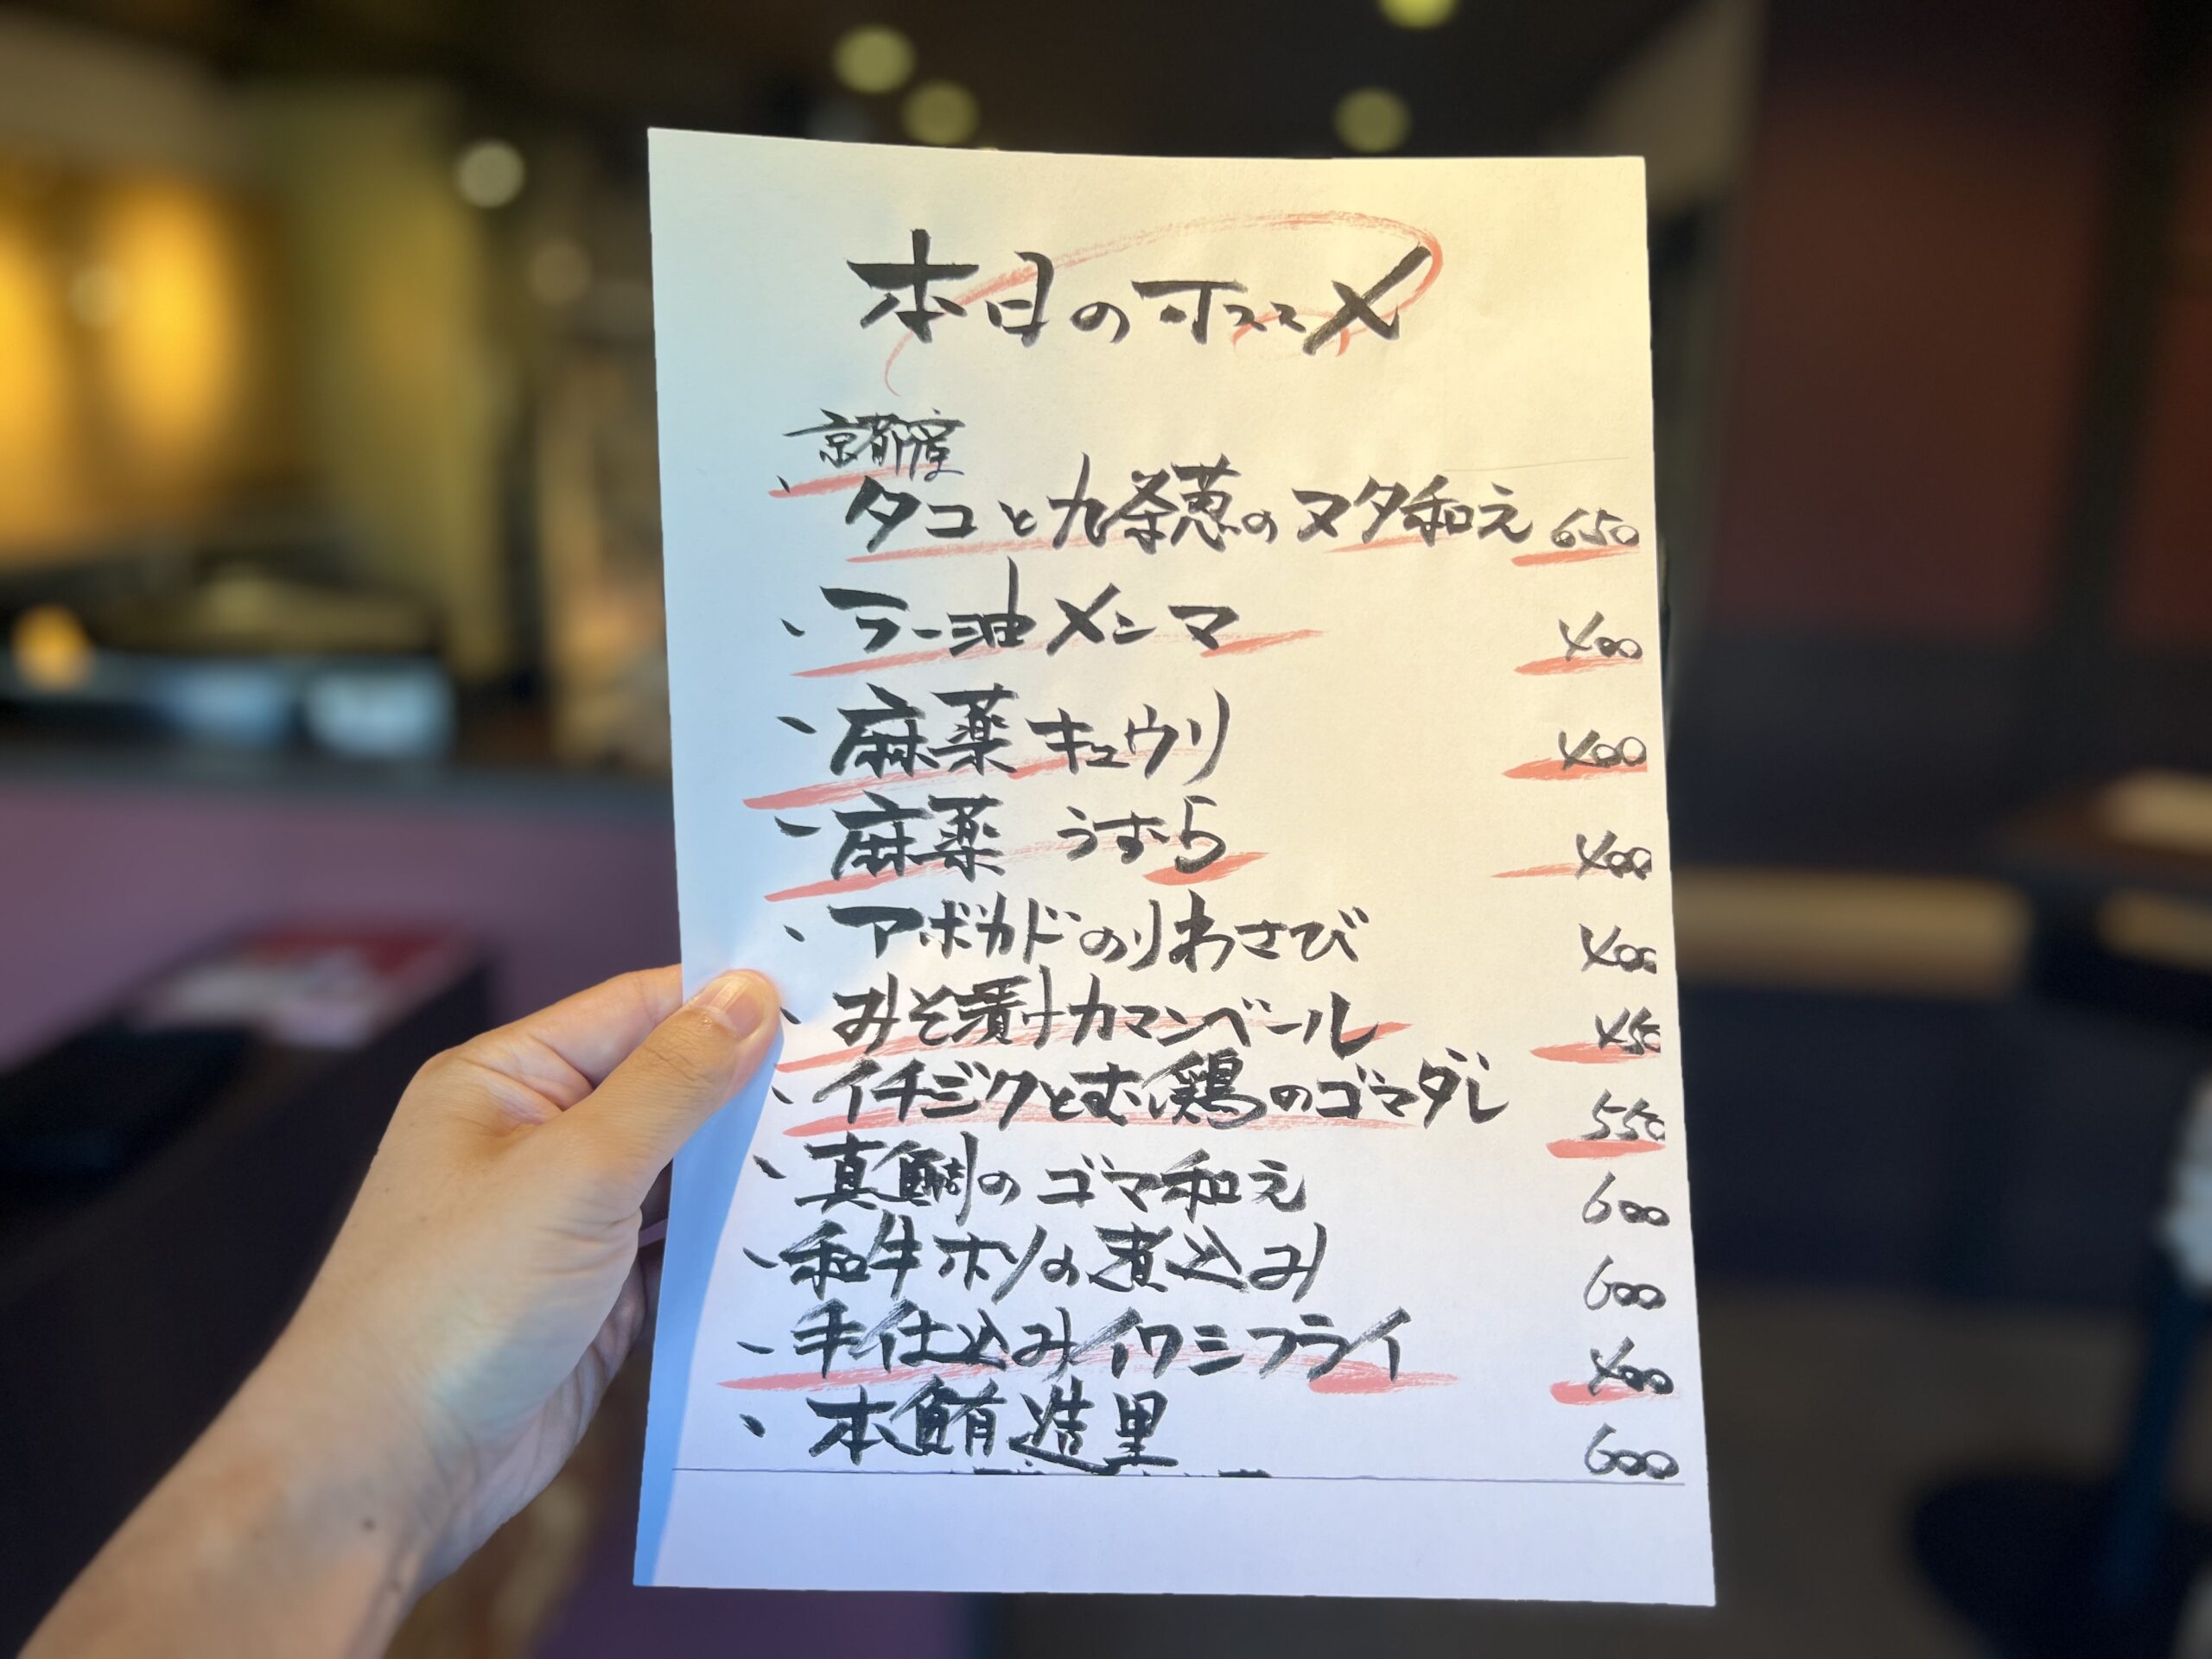 本日のオススメ
京都産
、タコと九条葱のヌタ和え 650
、ラー油メンマ 400
、麻薬キュウリ 400
、麻薬うずら 400
、アボカドのりわさび 400
、みそ漬けカマンベール 450
、イチジクとむし鶏のゴマダレ 550
、真鯛のゴマ和え 600
、和牛ホソの煮込み 600
、手仕込みイワシフライ 400
、本鮪造里 600